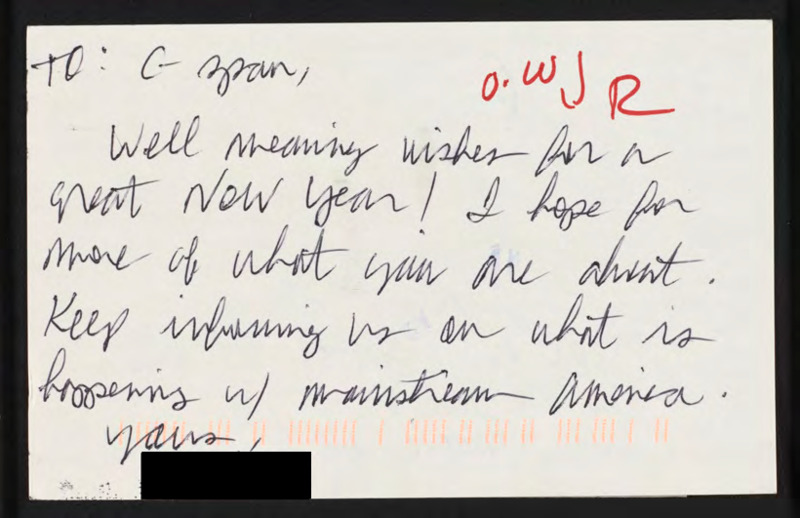 TO: C-span,
O. WJR
Well meaning wishes for a
great New Year! I hope for
more of what you are about.
Keep informing us on what is
happening w/ mainstream America.
yours,